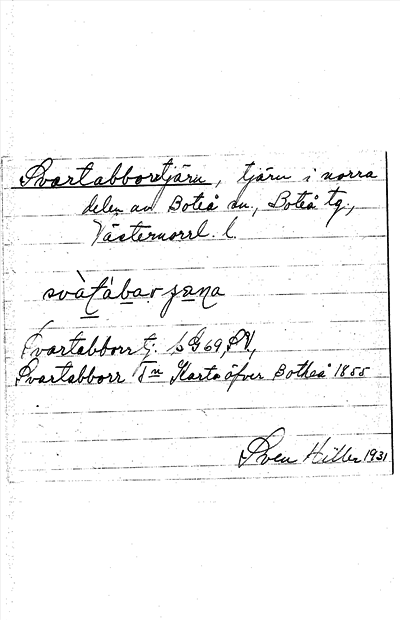 Svartabborrtjärn, tjärn i norra
delen av Boteå sn., Boteå tg.,
Västernorrl. l.
Svartabborrtj. bG69, SV,
Svartabborr Tn Karta öfver Botheå 1855
Sven Hiller 1931